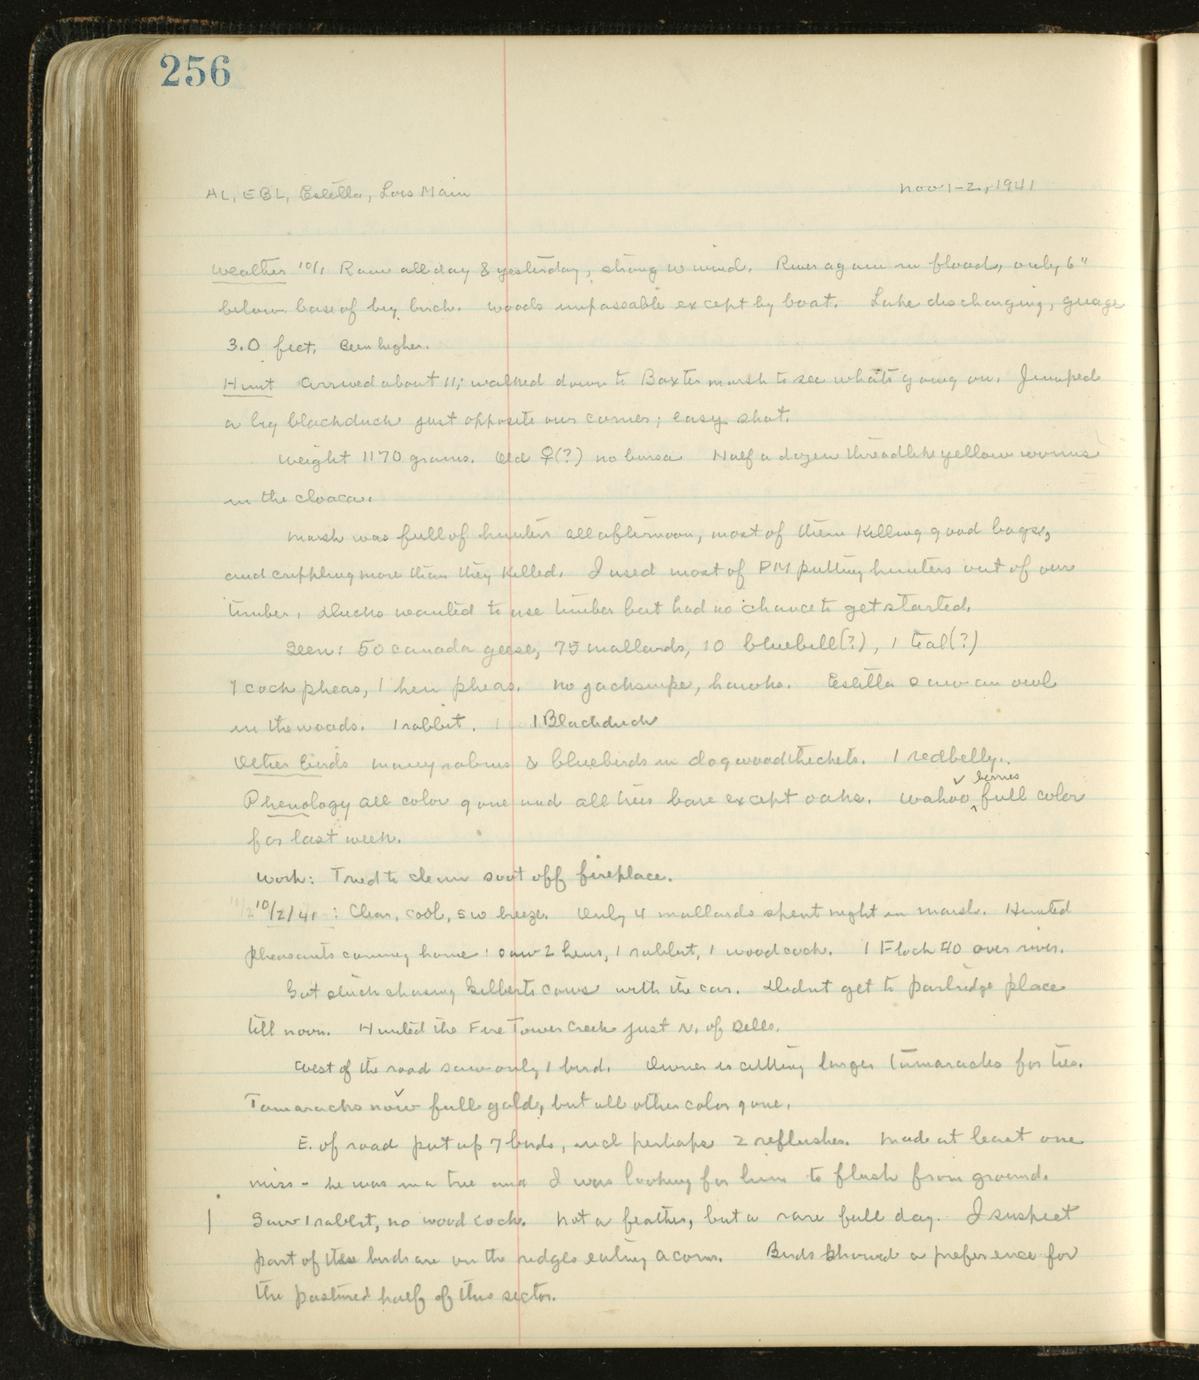 256
AL, EBL, Estella, Lois Main Nov 1-2, 1941
Weather 10/1 Rain all day & yesterday, strong W wind. River again in flood, only 6"
below base of big birch. Woods impassable except by boat. Lake discharging, guage
3.0 feet. Been higher.
Hunt Arrived about 11; walked down to Baxter marsh to see what's going on. Jumped
a big blackduck just opposite our corner; easy shot.
Weight 1170 grams. Old ♀(?) no bursa Half a dozen threadlike yellow worms
in the cloaca.
Marsh was full of hunters all afternoon, most of them killing good bags,
and crippling more than they killed. I used most of PM putting hunters out of our
timber. Ducks wanted to use timber but had no chance to get started.
Seen: 50 canada geese, 75 mallards, 10 bluebill(?), 1 teal(?)
7 cock pheas, 1 hen pheas. No jacksnipe, hawks. Estella saw an owl
in the woods. 1 rabbit. 1 Blackduck
Other birds many robins & bluebirds in dogwood thickets. 1 redbelly.
Phenology all color gone and all trees bare except oaks. Wahoo ^ berries full color
for last week.
Work: Tried to clean soot off fireplace.
10/2/41: Clear, cool, SW breeze. Only 4 mallards spent night in marsh. Hunted
pheasants coming home: saw 2 hens, 1 rabbit, 1 woodcock. 1 Flock 40 over river.
Got stuck chasing Gilberts cows with the car. Didnt get to partridge place
till noon. Hunted the Fire Tower Creek just N. of Dells.
West of the road saw only 1 bird. Owner is cutting larger tamaracks for ties.
Tamaracks now full gold, but all other color gone.
E. of road put up 7 birds, incl perhaps 2 reflushes. Made at least one
miss - he was in a tree and I was looking for him to flush from ground.
Saw 1 rabbit, no woodcock. Not a feather, but a rare fall day. I suspect
part of these birds are on the ridges eating acorns. Birds showed a preference for
the pastured half of this sector.